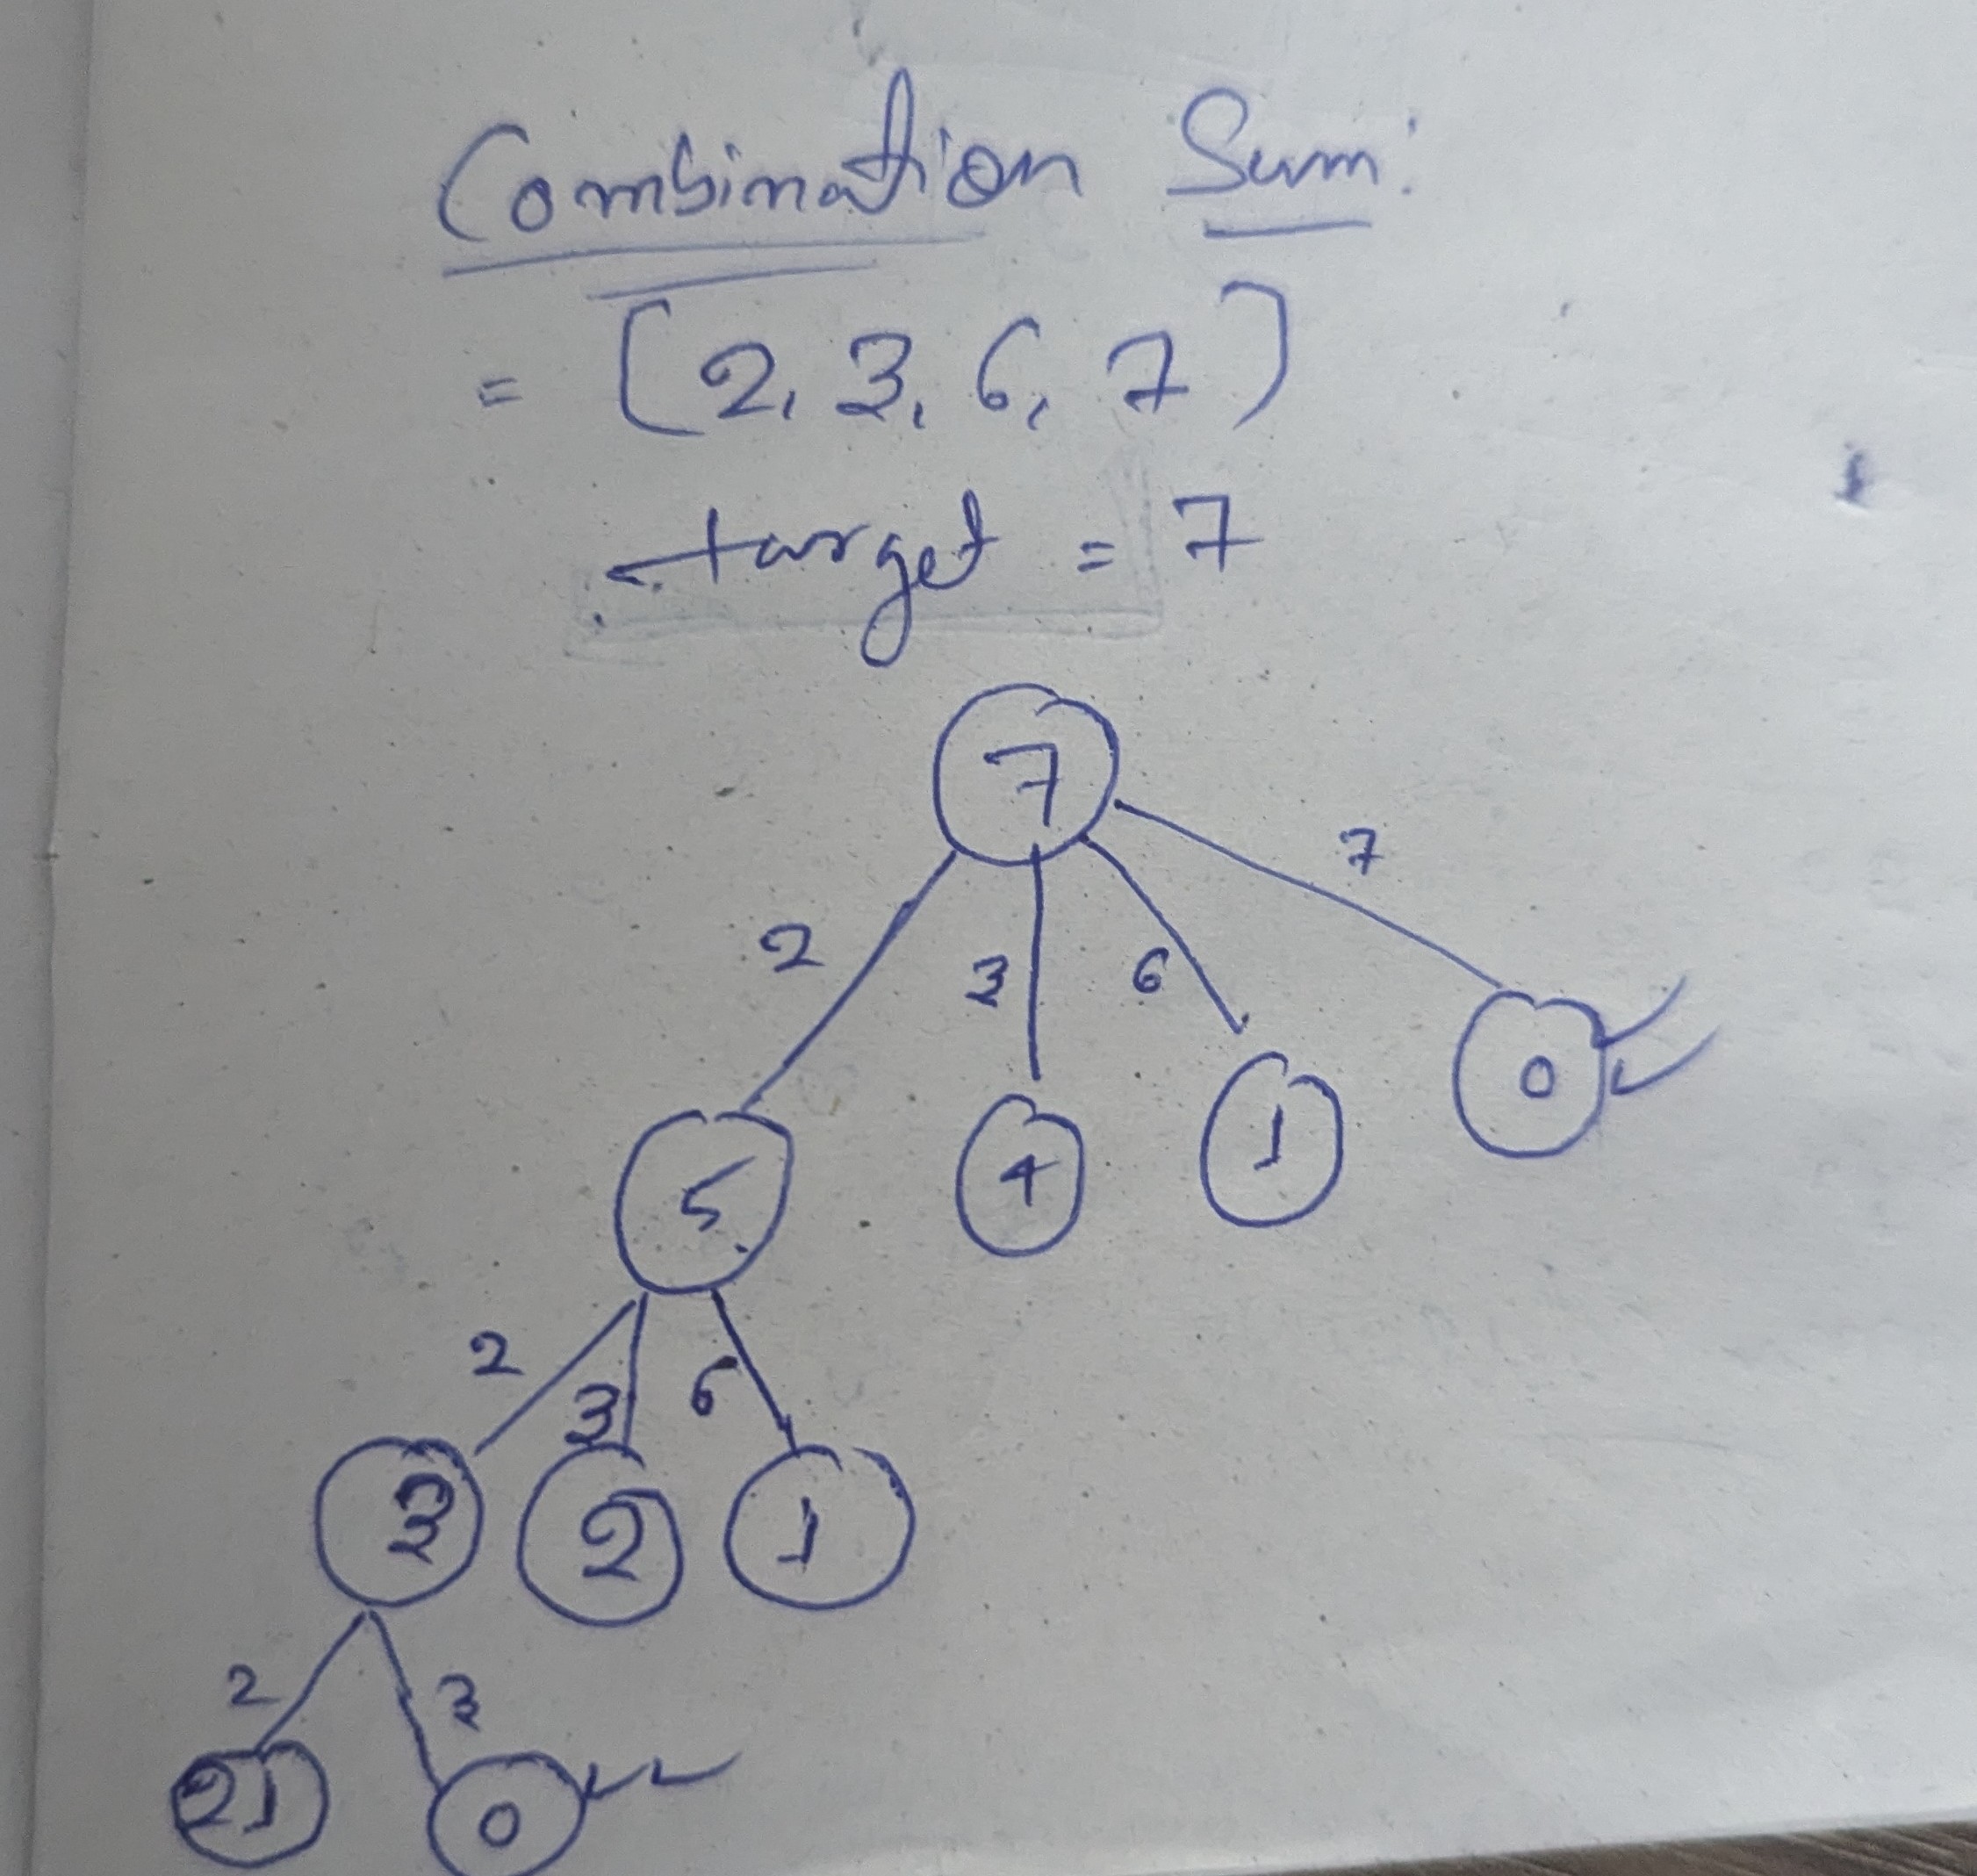 Combination Sum:
= [2, 3, 6, 7]
target = 7
7
2 3 6 7
5 4 1 0
2 3 6
3 2 1
2 3
21 0